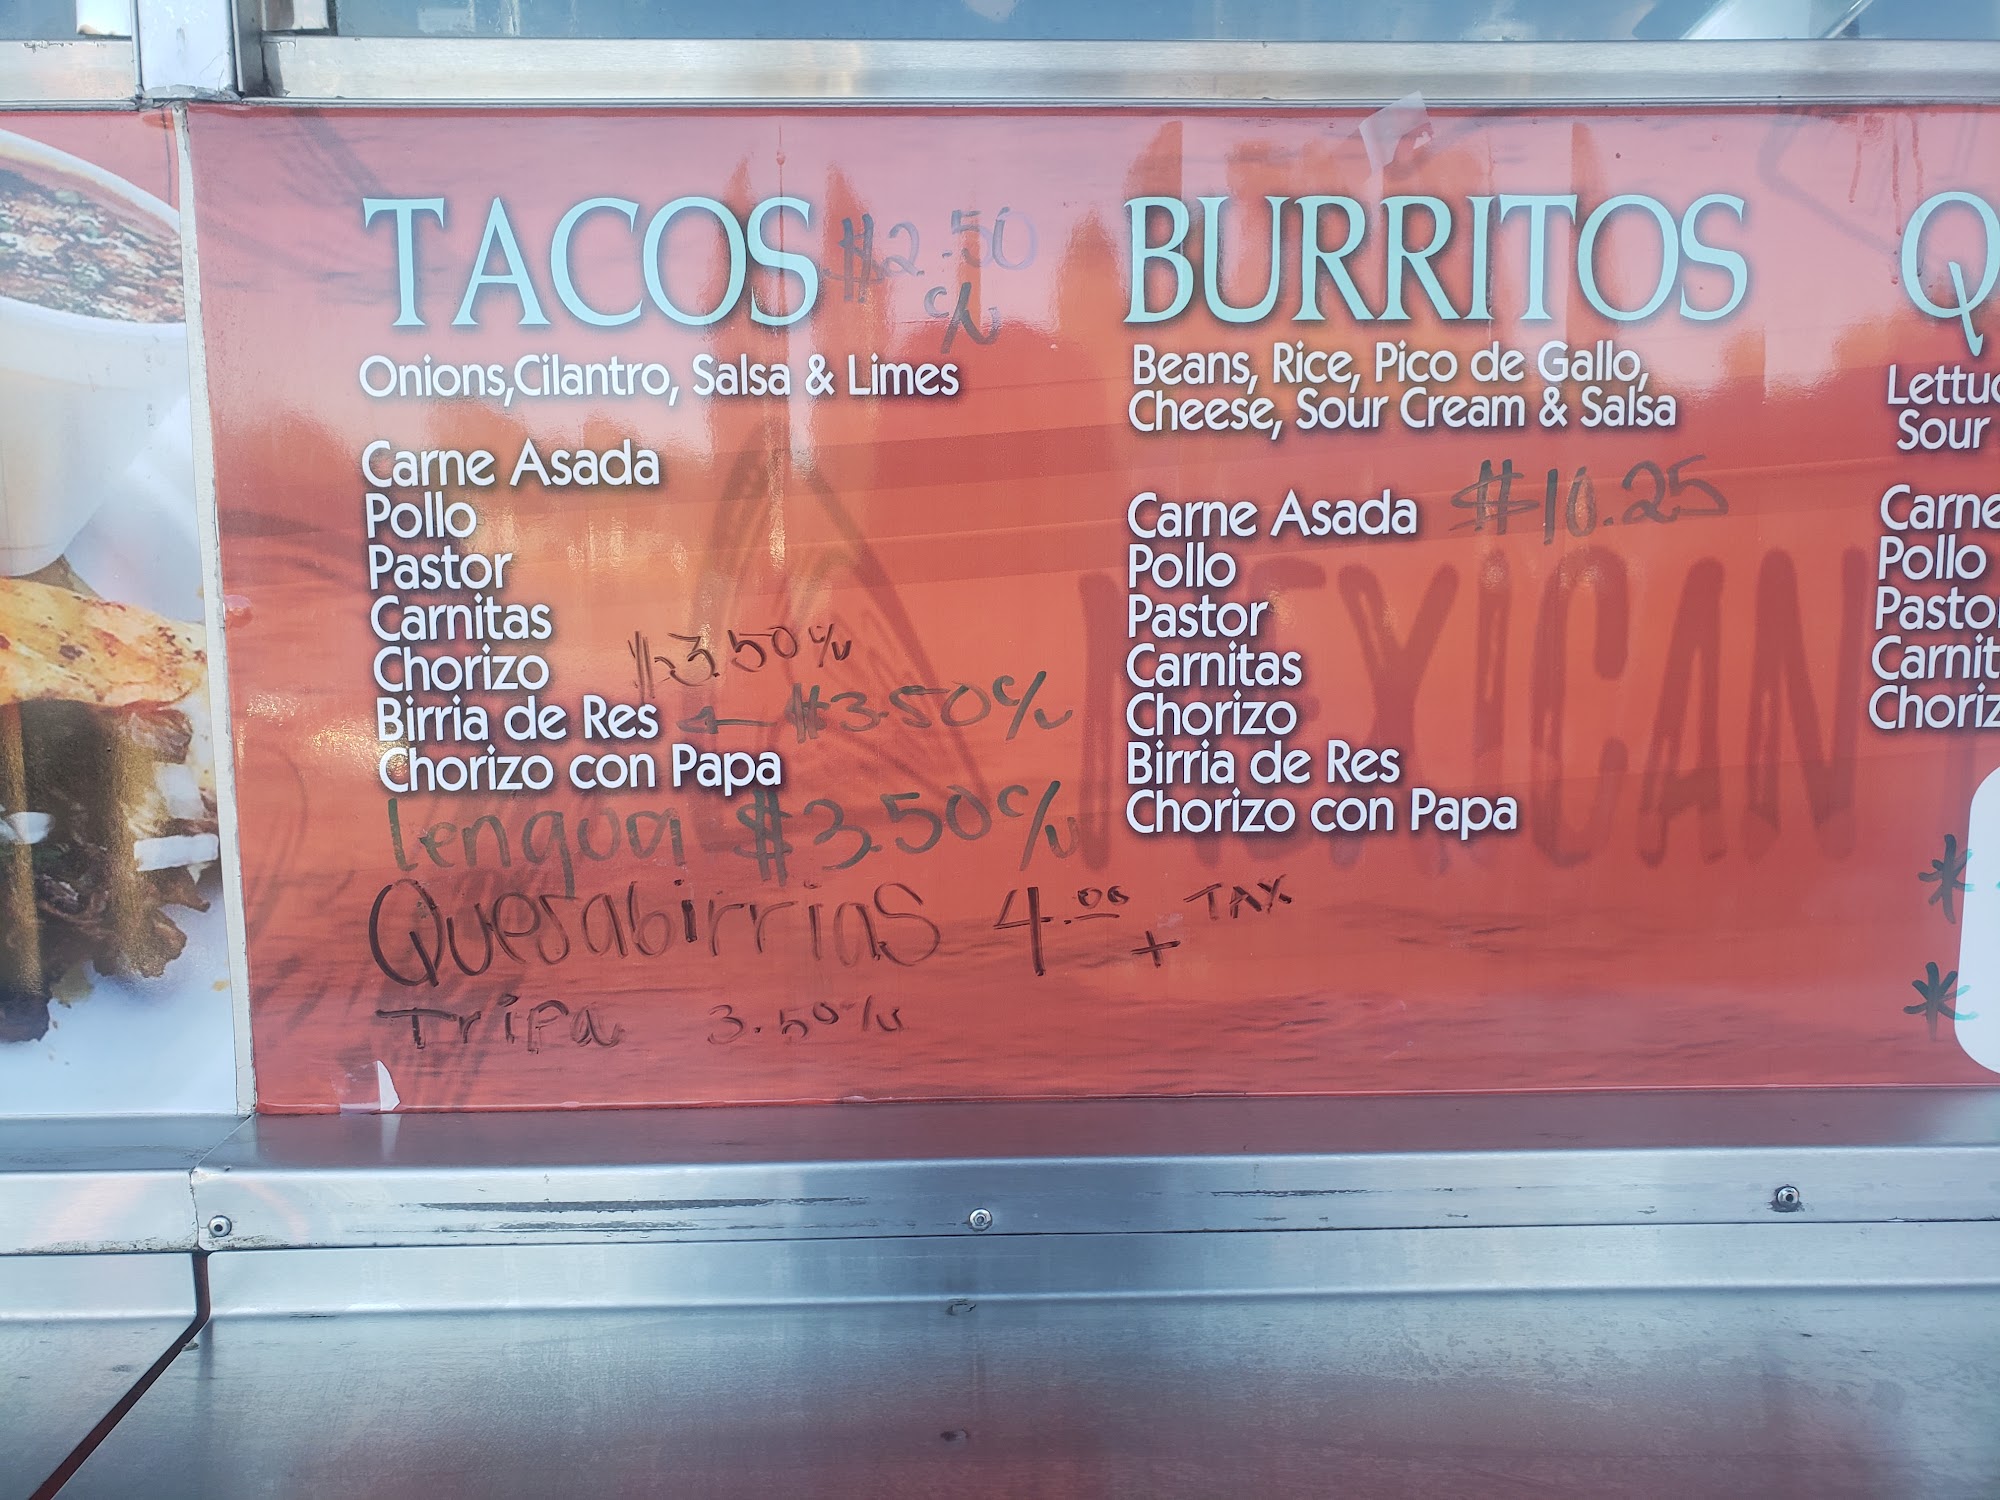 TACOS $2.50
c/u
Onions,Cilantro, Salsa & Limes
Carne Asada
Pollo
Pastor
Carnitas
Chorizo $3.50 c/u
Birria de Res ← $3.50 c/u
Chorizo con Papa
Lengua $3.50 c/u
Quesabirrias 4.00 + TAX
Tripa 3.50 c/u
BURRITOS
Beans, Rice, Pico de Gallo,
Cheese, Sour Cream & Salsa
Carne Asada $10.25
Pollo
Pastor
Carnitas
Chorizo
Birria de Res
Chorizo con Papa
MEXICAN
Q
Lettuc
Sour
Carne
Pollo
Pasto
Carnit
Choriz
*
*